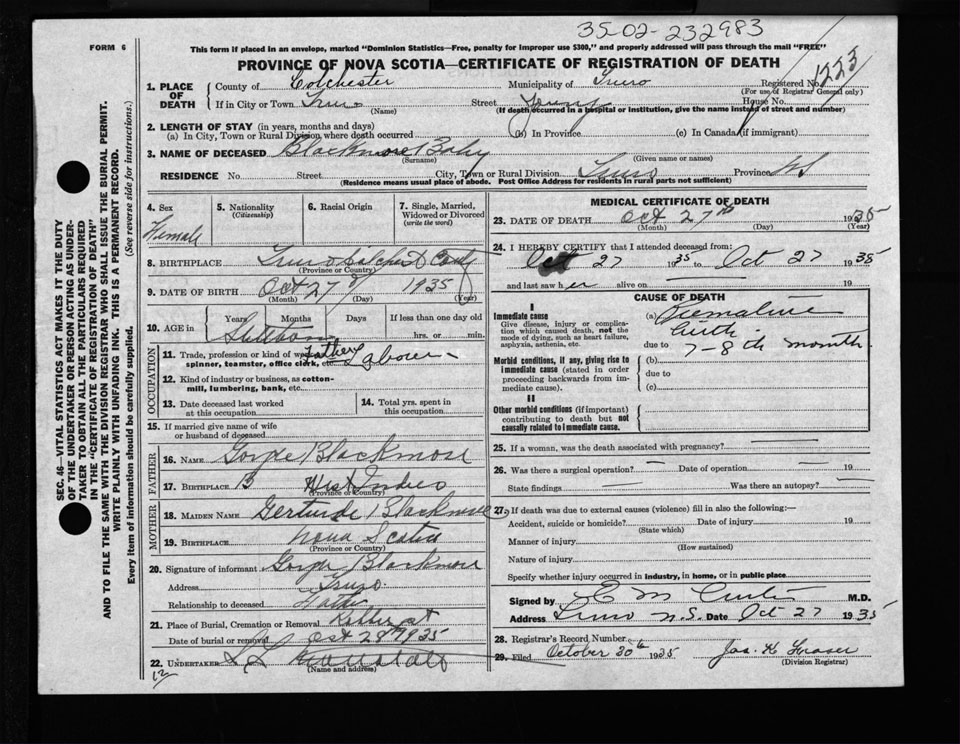 35-02-232983
FORM 6
This form if placed in an envelope, marked "Dominion Statistics—Free, penalty for improper use $300," and properly addressed will pass through the mail "FREE"
PROVINCE OF NOVA SCOTIA—CERTIFICATE OF REGISTRATION OF DEATH
1. PLACE OF DEATH
County of Colchester Municipality of Truro Registered No. 1223
(For use of Registrar General only)
If in City or Town Truro Street Young House No.
(Name) (If death occurred in a hospital or institution, give the name instead of street and number)
2. LENGTH OF STAY (in years, months and days)
(a) In City, Town or Rural Division where death occurred (b) In Province (c) In Canada (if immigrant)
3. NAME OF DECEASED Blackmore Baby
(Surname) (Given name or names)
RESIDENCE No. Street City, Town or Rural Division Truro Province NS
(Residence means usual place of abode. Post Office Address for residents in rural parts not sufficient)
SEC. 46—VITAL STATISTICS ACT MAKES IT THE DUTY
OF THE UNDERTAKER OR PERSON ACTING AS UNDER-
TAKER TO OBTAIN ALL THE PARTICULARS REQUIRED
IN THE "CERTIFICATE OF REGISTRATION OF DEATH"
AND TO FILE THE SAME WITH THE DIVISION REGISTRAR WHO SHALL ISSUE THE BURIAL PERMIT.
WRITE PLAINLY WITH UNFADING INK. THIS IS A PERMANENT RECORD.
Every item of information should be carefully supplied. (See reverse side for instructions.)
4. Sex
Female
5. Nationality
(Citizenship)
6. Racial Origin
7. Single, Married,
Widowed or Divorced
(write the word)
8. BIRTHPLACE Truro Colchest County
(Province or Country)
9. DATE OF BIRTH Oct 27 1935
(Month) (Day) (Year)
10. AGE in Years Months Days If less than one day old
Stillborn hrs. or min.
OCCUPATION
11. Trade, profession or kind of work as
spinner, teamster, office clerk, etc. Father Labourer
12. Kind of industry or business, as cotton-
mill, lumbering, bank, etc.
13. Date deceased last worked
at this occupation
14. Total yrs. spent in
this occupation
15. If married give name of wife
or husband of deceased
FATHER
16. NAME George Blackmore
17. BIRTHPLACE B West Indies
(Province or Country)
MOTHER
18. MAIDEN NAME Gertrude Blackmore
19. BIRTHPLACE Nova Scotia
(Province or Country)
20. Signature of informant George Blackmore
Address Truro
Relationship to deceased Father
21. Place of Burial, Cremation or Removal st
Date of burial or removal Oct 28 1935
22. UNDERTAKER
(Name and address)
12
MEDICAL CERTIFICATE OF DEATH
23. DATE OF DEATH Oct 27th 1935
(Month) (Day) (Year)
24. I HEREBY CERTIFY that I attended deceased from:
Oct 27 1935 to Oct 27 1935
and last saw h er alive on 19
CAUSE OF DEATH
I
Immediate cause
Give disease, injury or complica-
tion which caused death, not the
mode of dying, such as heart failure,
asphyxia, asthenia, etc.
(a) Premature
birth
due to 7-8th month
Morbid conditions, if any, giving rise to
immediate cause (stated in order
proceeding backwards from im-
mediate cause).
(b)
due to
(c)
II
Other morbid conditions (if important)
contributing to death but not
causally related to immediate cause.
25. If a woman, was the death associated with pregnancy?
26. Was there a surgical operation? Date of operation 19
State findings Was there an autopsy?
27. If death was due to external causes (violence) fill in also the following:—
Accident, suicide or homicide? Date of injury 19
(State which)
Manner of injury
(How sustained)
Nature of injury
Specify whether injury occurred in industry, in home, or in public place
Signed by C M Curtis M.D.
Address Truro N.S. Date Oct 27 1935
28. Registrar's Record Number
29. Filed October 30th 1935 Jas. K Fraser
(Division Registrar)